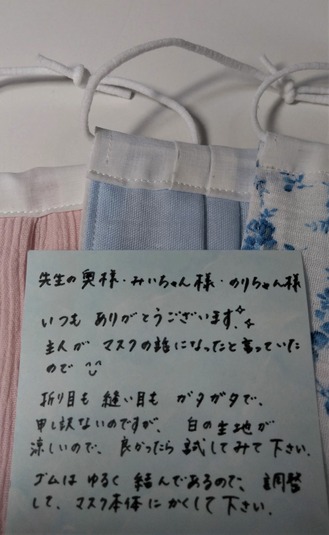 先生の奥様・みいちゃん様・のりちゃん様
いつも ありがとうございます
主人が マスクの話になったと言っていた
ので
折り目も 縫い目も ガタガタで、
申し訳ないのですが、白の生地が
涼しいので、良かったら 試してみて下さい.
ゴムは ゆるく 結んであるので、調整
して、マスク本体に かくして 下さい.